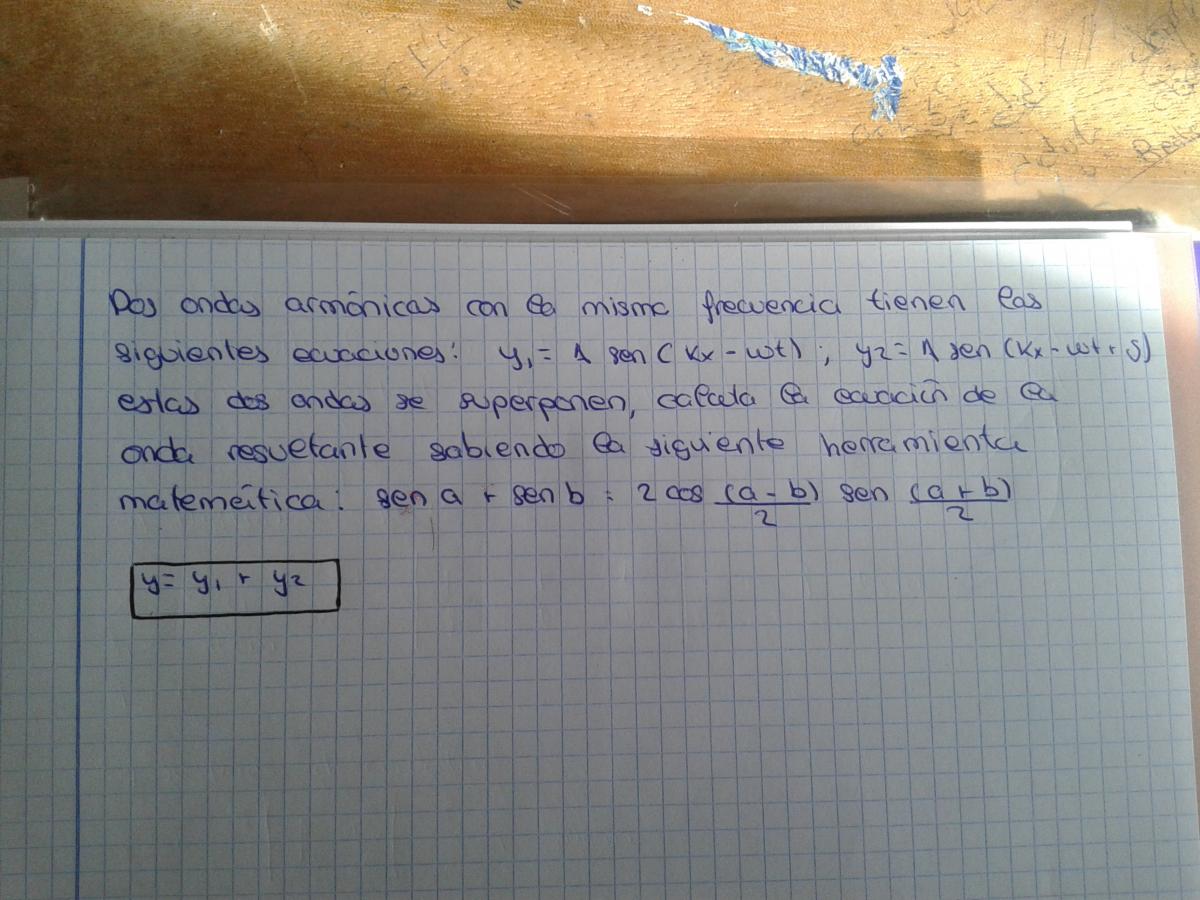 Dos ondas armónicas con la misma frecuencia tienen las
siguientes ecuaciones: y₁ = A sen (Kx - ωt) ; y₂ = A sen (Kx - ωt + δ)
estas dos ondas se superponen, calcula la ecuación de la
onda resultante sabiendo la siguiente herramienta
matemática: sen a + sen b = 2 cos (a - b)/2 sen (a + b)/2
y = y₁ + y₂